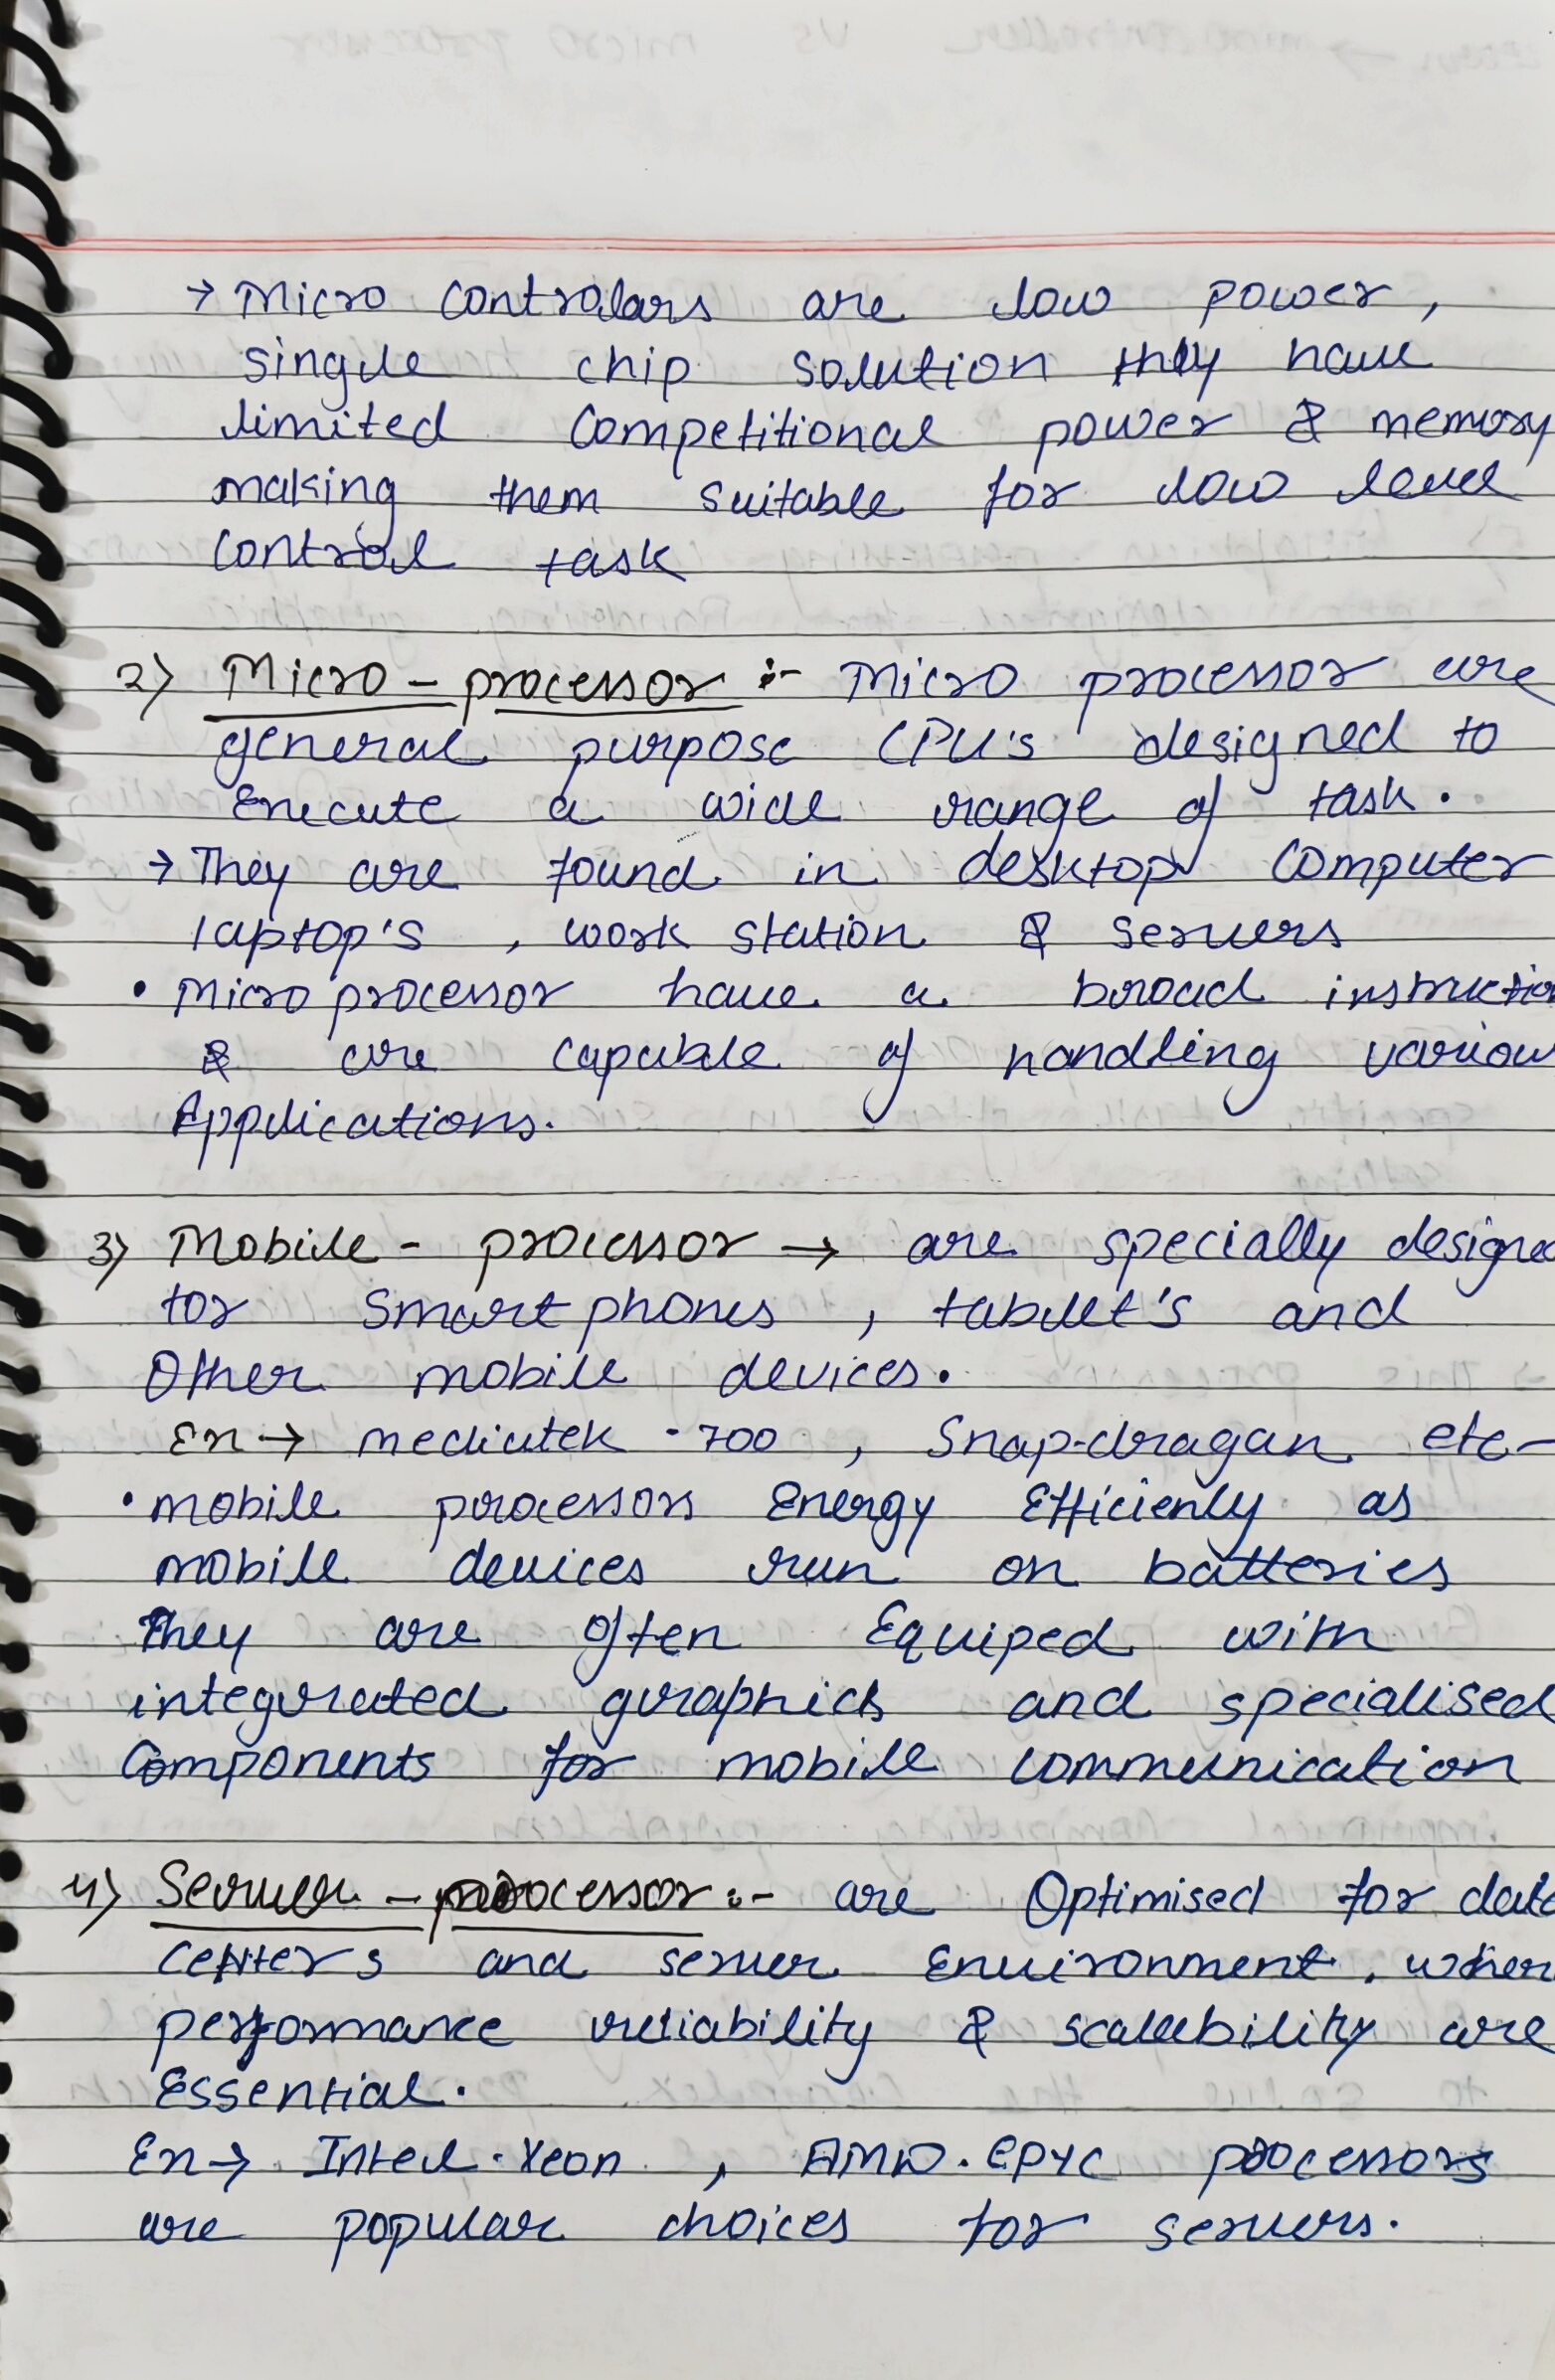 → Micro Controlars are low power,
single chip solution they have
limited Competitional power & memory
making them suitable for low level
Control task
2) Micro - processor :- Micro processor are
general purpose CPU's designed to
Execute a wide range of task.
→ They are found in desktop Computer
laptop's , work station & servers
• Micro processor have a broad instruction
& are capable of handling various
Applications.
3) Mobile - processor → are specially designed
for Smart phones , tablet's and
Other mobile devices.
Ex → mediatek - 700 , Snap-dragan etc-
• mobile processors Energy Efficienly as
mobile devices run on batteries
They are often Equiped with
integrated graphics and specialised
Components for mobile communication
4) Server - processor :- are Optimised for data
centers and server Environment , where
performance reliability & scalebility are
Essential.
Ex → Intel . Xeon , AMD . EPYC processors
are popular choices for servers.